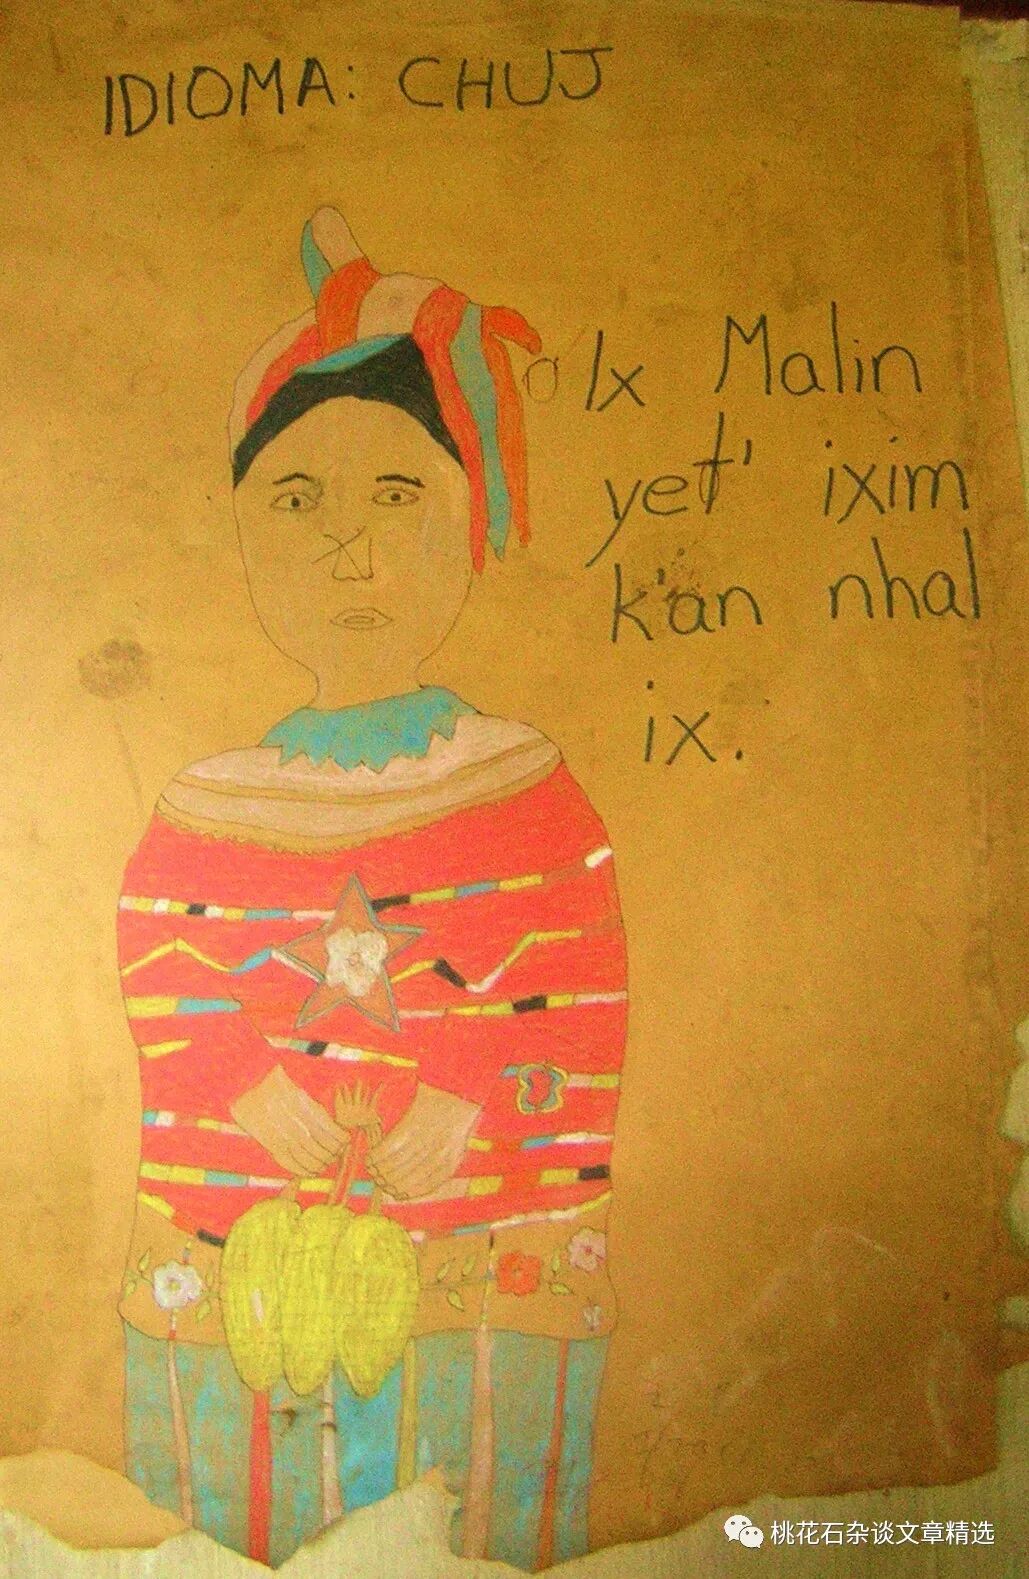 IDIOMA: CHUJ
Ix Malin
yet' ixim
k'an nhal
ix.
桃花石杂谈文章精选